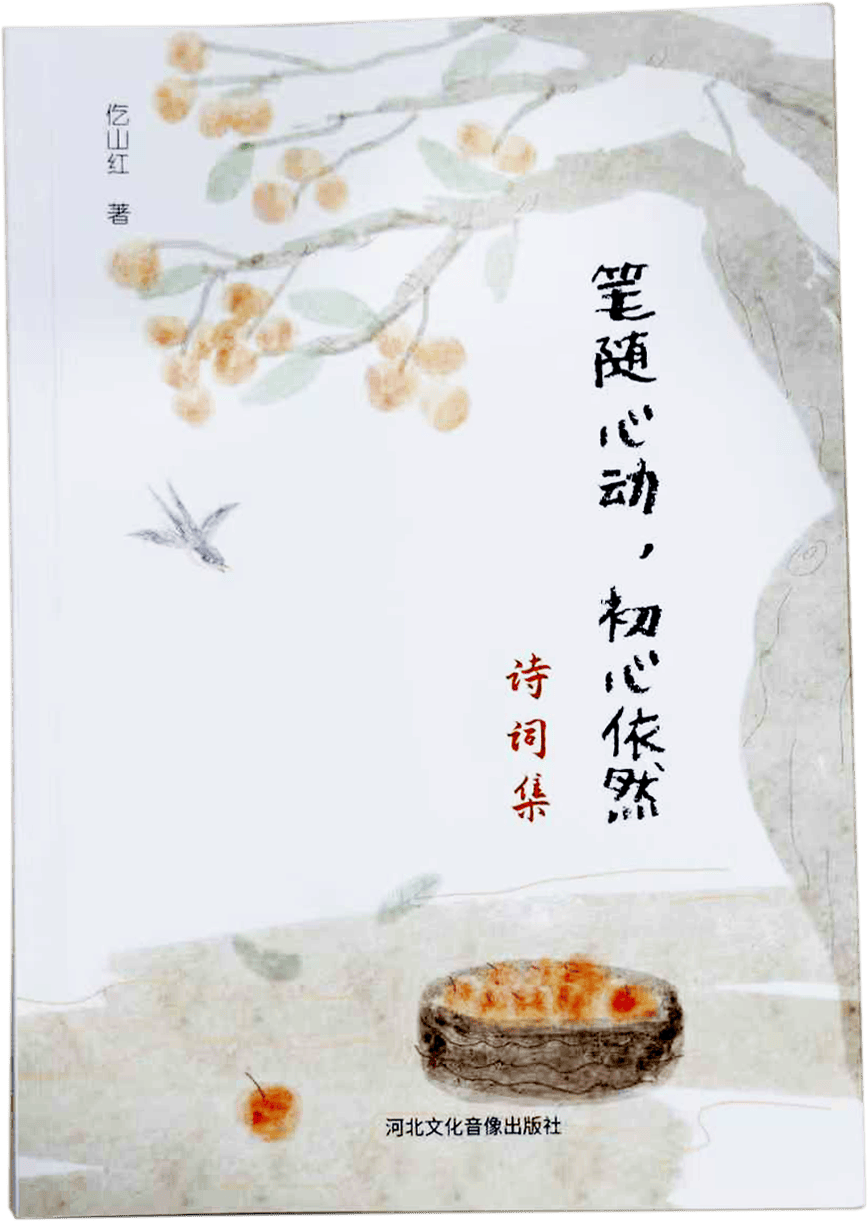 笔随心动，初心依然
诗词集
仡山红 著
河北文化音像出版社